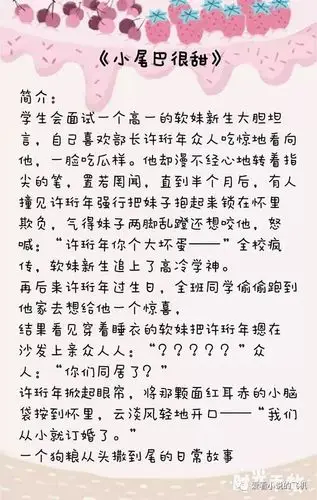 《小尾巴很甜》
简介：
学生会面试一个高一的软妹新生大胆坦
言，自己喜欢部长许珩年众人吃惊地看向
他，一脸吃瓜样。他却漫不经心地转着指
尖的笔，置若罔闻，直到半个月后，有人
撞见许珩年强行把妹子抱起来锁在怀里
欺负，气得妹子两脚乱蹬还想咬他，怒
喊：“许珩年你个大坏蛋——”全校疯
传，软妹新生追上了高冷学神。
再后来许珩年过生日，全班同学偷偷跑到
他家去想给他一个惊喜，
结果看见穿着睡衣的软妹把许珩年摁在
沙发上亲众人人：“？？？？？”众
人：“你们同居了？”
许珩年掀起眼帘，将那颗面红耳赤的小脑
袋按到怀里，云淡风轻地开口——“我们
从小就订婚了。”
一个狗粮从头撒到尾的日常故事